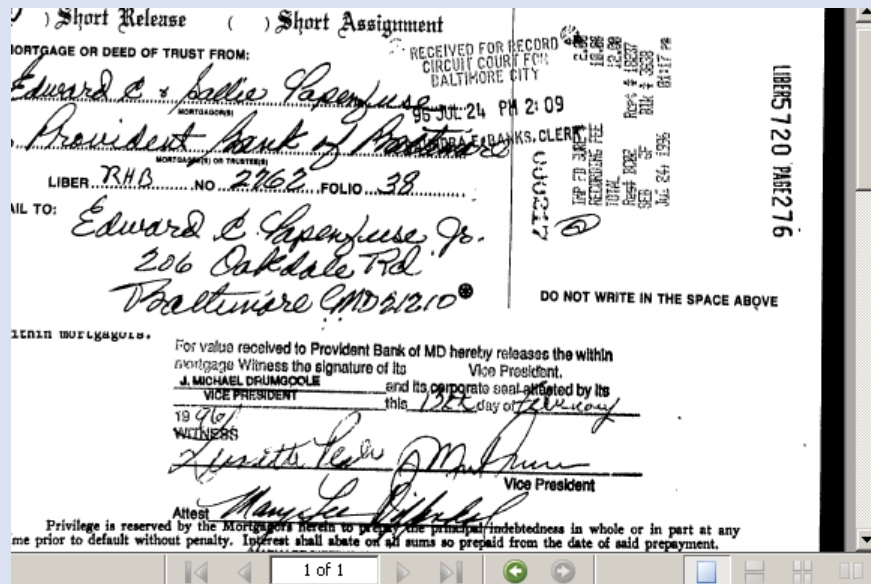 ) Short Release ( ) Short Assignment
ORTGAGE OR DEED OF TRUST FROM:
RECEIVED FOR RECORD
CIRCUIT COURT FOR
BALTIMORE CITY
96 JUL 24 PM 2:09
BANKS, CLERK
Edward C & Sallie Papenfuse
MORTGAGOR(S)
Provident Bank of Baltimore
MORTGAGEE(S) OR TRUSTEE(S)
LIBER RHB NO 2762 FOLIO 38
AIL TO:
Edward C. Papenfuse Jr.
206 Oakdale Rd
Baltimore MD 21210
000217
IMP FD SURE 2.00
RECORDING FEE 10.00
TOTAL 12.00
Jul 24, 1996 01:17 PM
LIBER5720 PAGE276
DO NOT WRITE IN THE SPACE ABOVE
ithin mortgagors.
For value received to Provident Bank of MD hereby releases the within
mortgage Witness the signature of its Vice President.
J. MICHAEL DRUMGOOLE and its corporate seal attested by its
VICE PRESIDENT this 13th day of February
19 96
WITNESS
Vice President
Attest Mary Lee
Privilege is reserved by the Mortgagors herein to prepay the principal indebtedness in whole or in part at any
me prior to default without penalty. Interest shall abate on all sums so prepaid from the date of said prepayment.
1 of 1